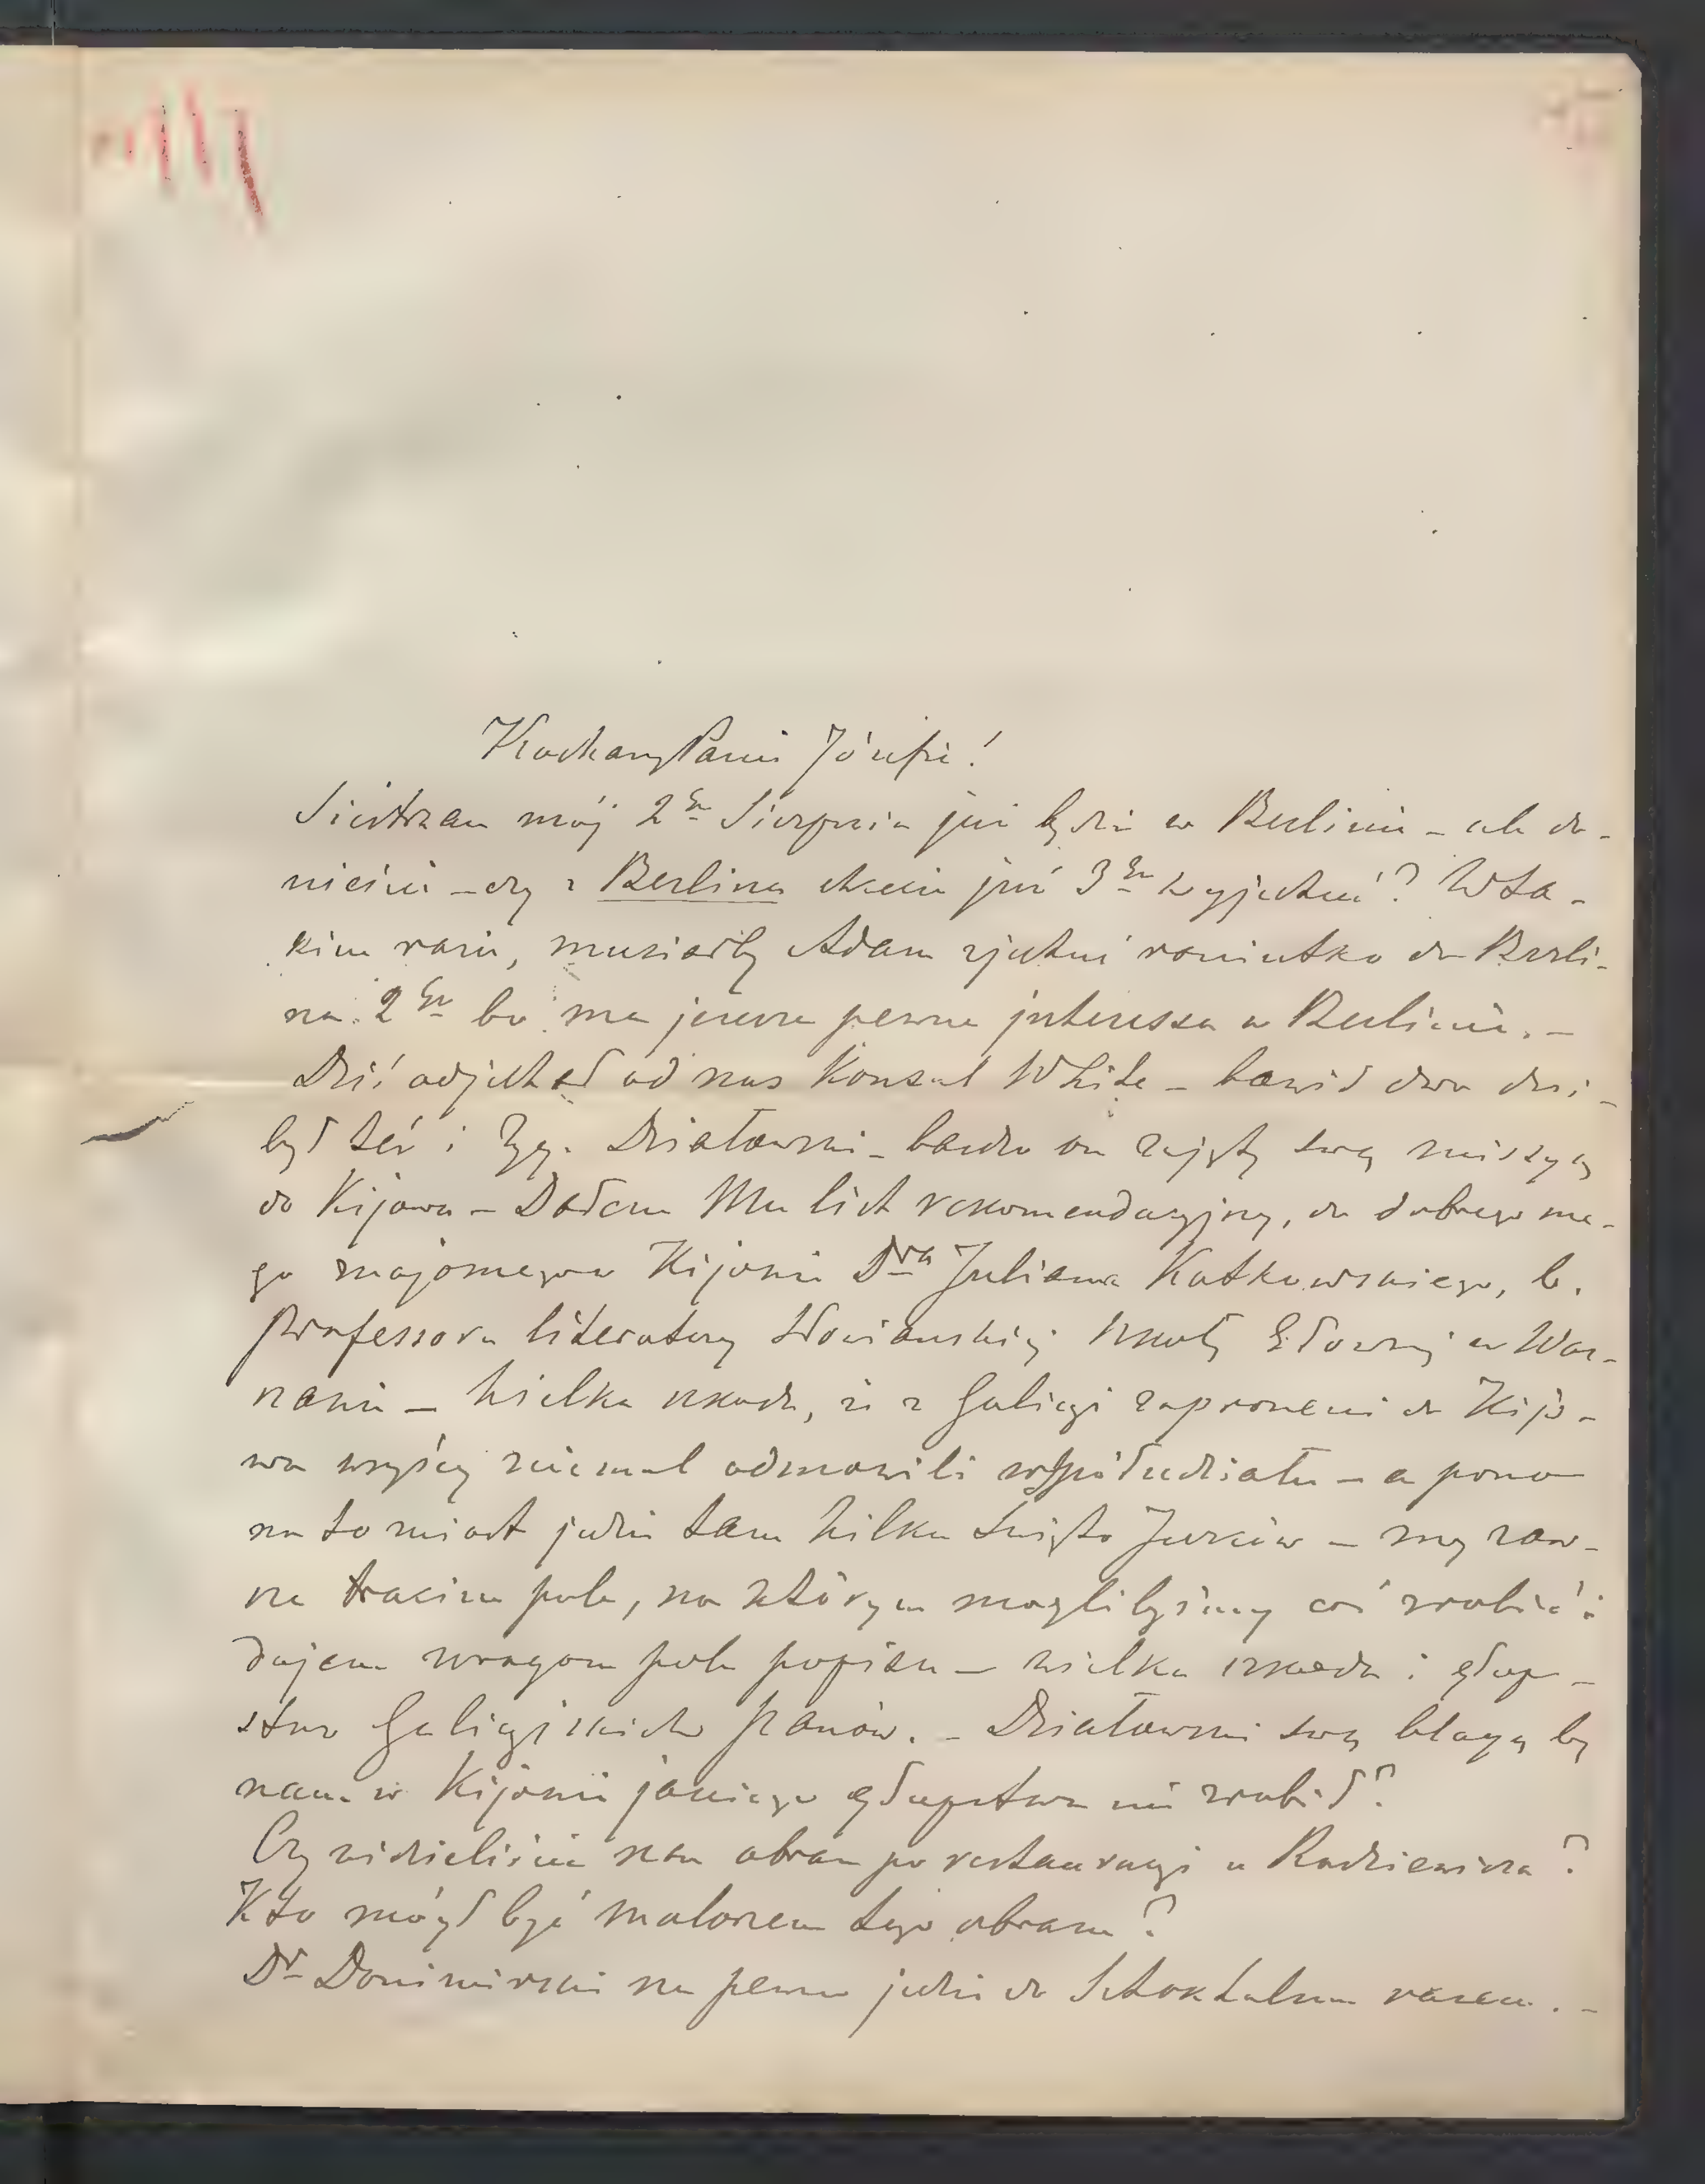 Kochany Panie Józefie!
Siostrzan mój 2go Sierpnia już będzie w Berlinie – ale do-
nieście – czy z Berlina chcecie już 3go wyjechać? W ta-
kim razie, musiałby Adam zjechać raniutko do Berli-
na 2go bo ma jeszcze pewne interessa w Berlinie. –
Dziś odjechał od nas Konsul White – bawił dwa dni –
był też i Zyg. Działowski – bardzo on zajęty swą missyą
do Kijowa – Dałem Mu list rekomendacyjny, do dobrego me-
go znajomego w Kijowie Dra Juliana Kotkowskiego, b.
professora literatury słowiańskiej szkoły Głównej w War-
szawie – Wielka szkoda, iż z Galicyi zaproszeni do Kijo-
wa wszyscy niemal odmówili współudziału – a pono
na to miast jedzie tam kilku święto Jurców – my zaw-
sze tracim pole, na którym moglibyśmy coś zrobić i
dajem wrogom pole popisu – wielka szkoda i głup-
stwo Galicyjskich panów. – Działowski swą blagą by
nam w Kijowie jakiego głupstwa nie zrobił?
Czy widzieliście nasz obraz po restauracyi u Radziewicza?
Kto mógł być malarzem tego obrazu?
Dr Donimirski na pewno jedzie do Sztokholmu razem. –